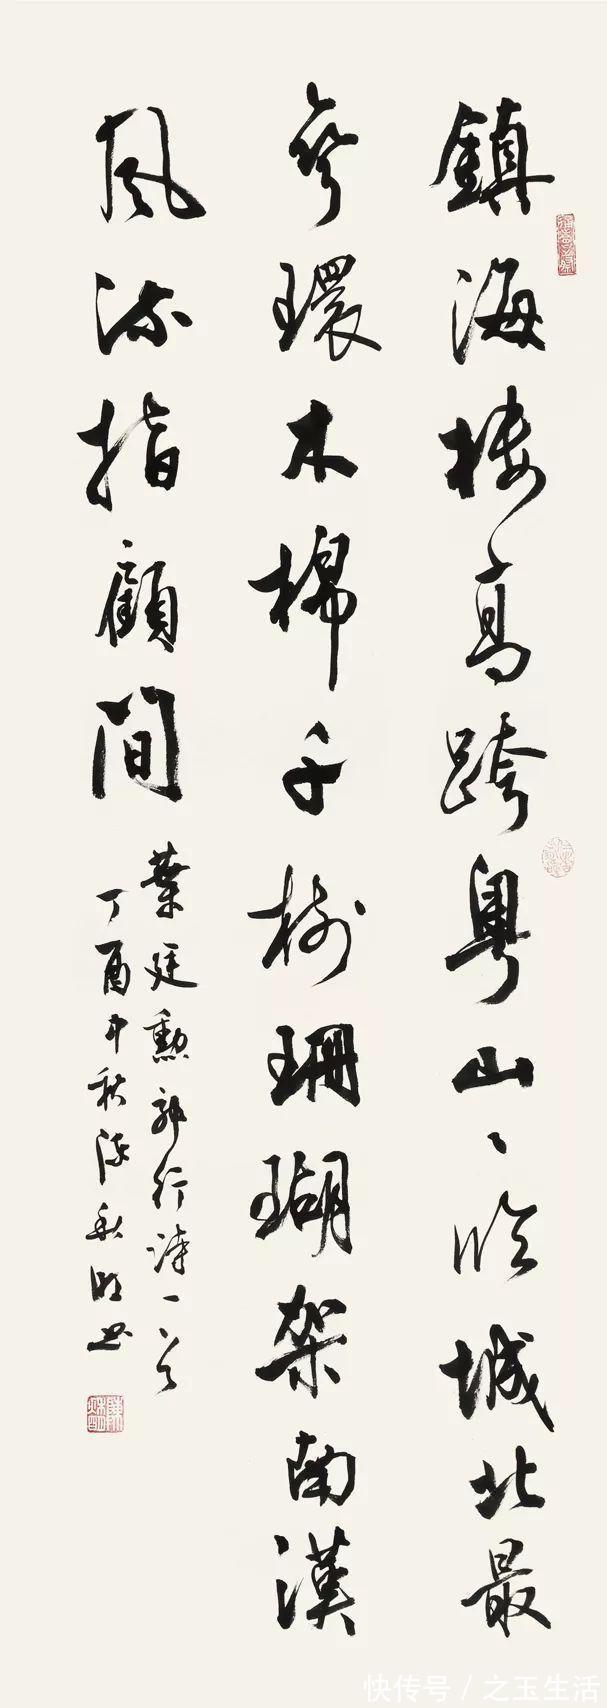 鎮海楼高跨粤山々臨城北最
彎環木棉千樹珊瑚架南漢
風流指顧間
葉廷勳郊行詩一首
丁酉中秋陳秋明書
快传号 / 之玉生活